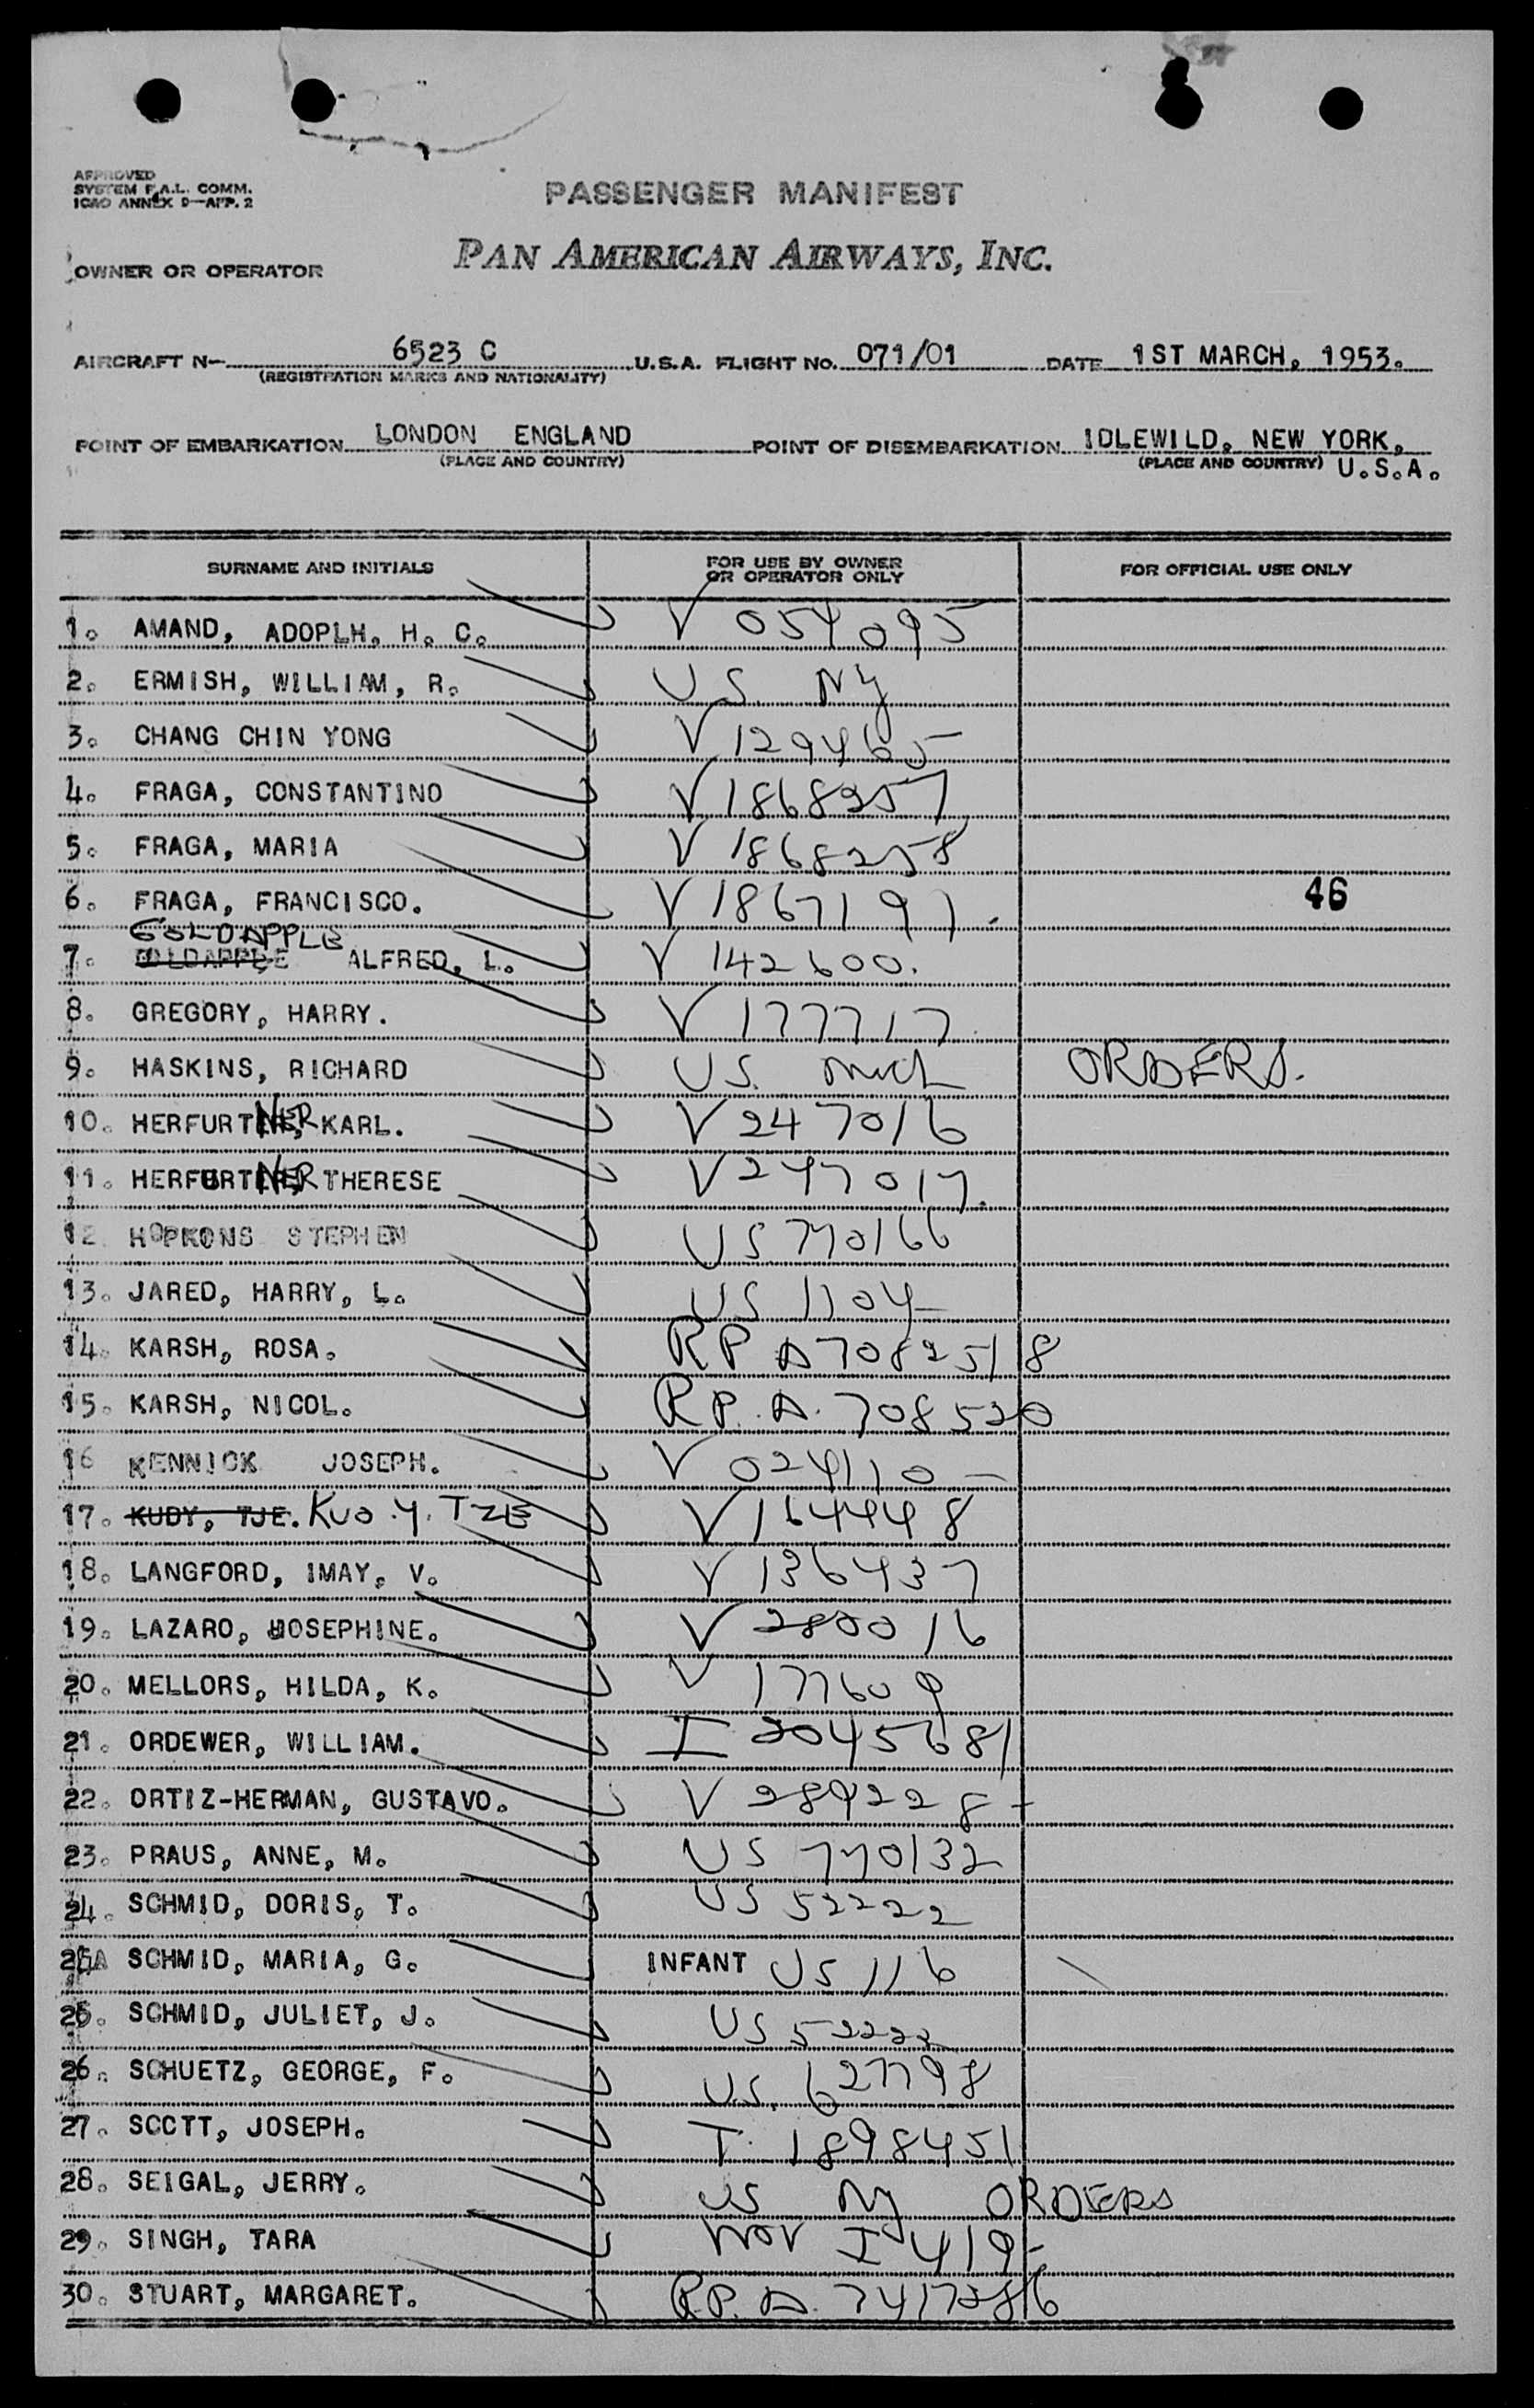 APPROVED
SYSTEM F.A.L. COMM.
ICAO ANNEX 9—APP. 2
PASSENGER MANIFEST
OWNER OR OPERATOR PAN AMERICAN AIRWAYS, INC.
AIRCRAFT N— 6523 C U.S.A. FLIGHT NO. 071/01 DATE 1ST MARCH, 1953.
(REGISTRATION MARKS AND NATIONALITY)
POINT OF EMBARKATION LONDON ENGLAND POINT OF DISEMBARKATION IDLEWILD, NEW YORK,
(PLACE AND COUNTRY) (PLACE AND COUNTRY) U.S.A.
SURNAME AND INITIALS FOR USE BY OWNER OR OPERATOR ONLY FOR OFFICIAL USE ONLY
1. AMAND, ADOPLH. H. C. V 054095
2. ERMISH, WILLIAM, R. US NY
3. CHANG CHIN YONG V 129465
4. FRAGA, CONSTANTINO V 1868257
5. FRAGA, MARIA V 1868258
6. FRAGA, FRANCISCO. V 1867197. 46
GOLDAPPLE
7. ALFRED, L. V 142600.
8. GREGORY, HARRY. V 177717
9. HASKINS, RICHARD US. Mich ORDERS.
10. HERFURTNER KARL. V 247016
11. HERFURTNER THERESE V 247017.
12 HOPKONS STEPHEN US 770166
13. JARED, HARRY, L. US 1104
14. KARSH, ROSA. RP A7082518
15. KARSH, NICOL. R.P. A. 708520
16 KENNICK JOSEPH. V 024110 —
17. KUDY, TJE. KUO. Y. TZE V 164448
18. LANGFORD, IMAY, V. V 136437
19. LAZARO, JOSEPHINE. V 280016
20. MELLORS, HILDA, K. V 177609
21. ORDEWER, WILLIAM. I 2045681
22. ORTIZ-HERMAN, GUSTAVO. V 289228
23. PRAUS, ANNE, M. US 770132
24. SCHMID, DORIS, T. US 52222
SCHMID, MARIA, G. INFANT US 116
25. SCHMID, JULIET, J. US 52223
26. SCHUETZ, GEORGE, F. U.S. 627798
27. SCOTT, JOSEPH. T. 1898451
28. SEIGAL, JERRY. US NY ORDERS
29. SINGH, TARA I 419
30. STUART, MARGARET. R.P. A. 7417286